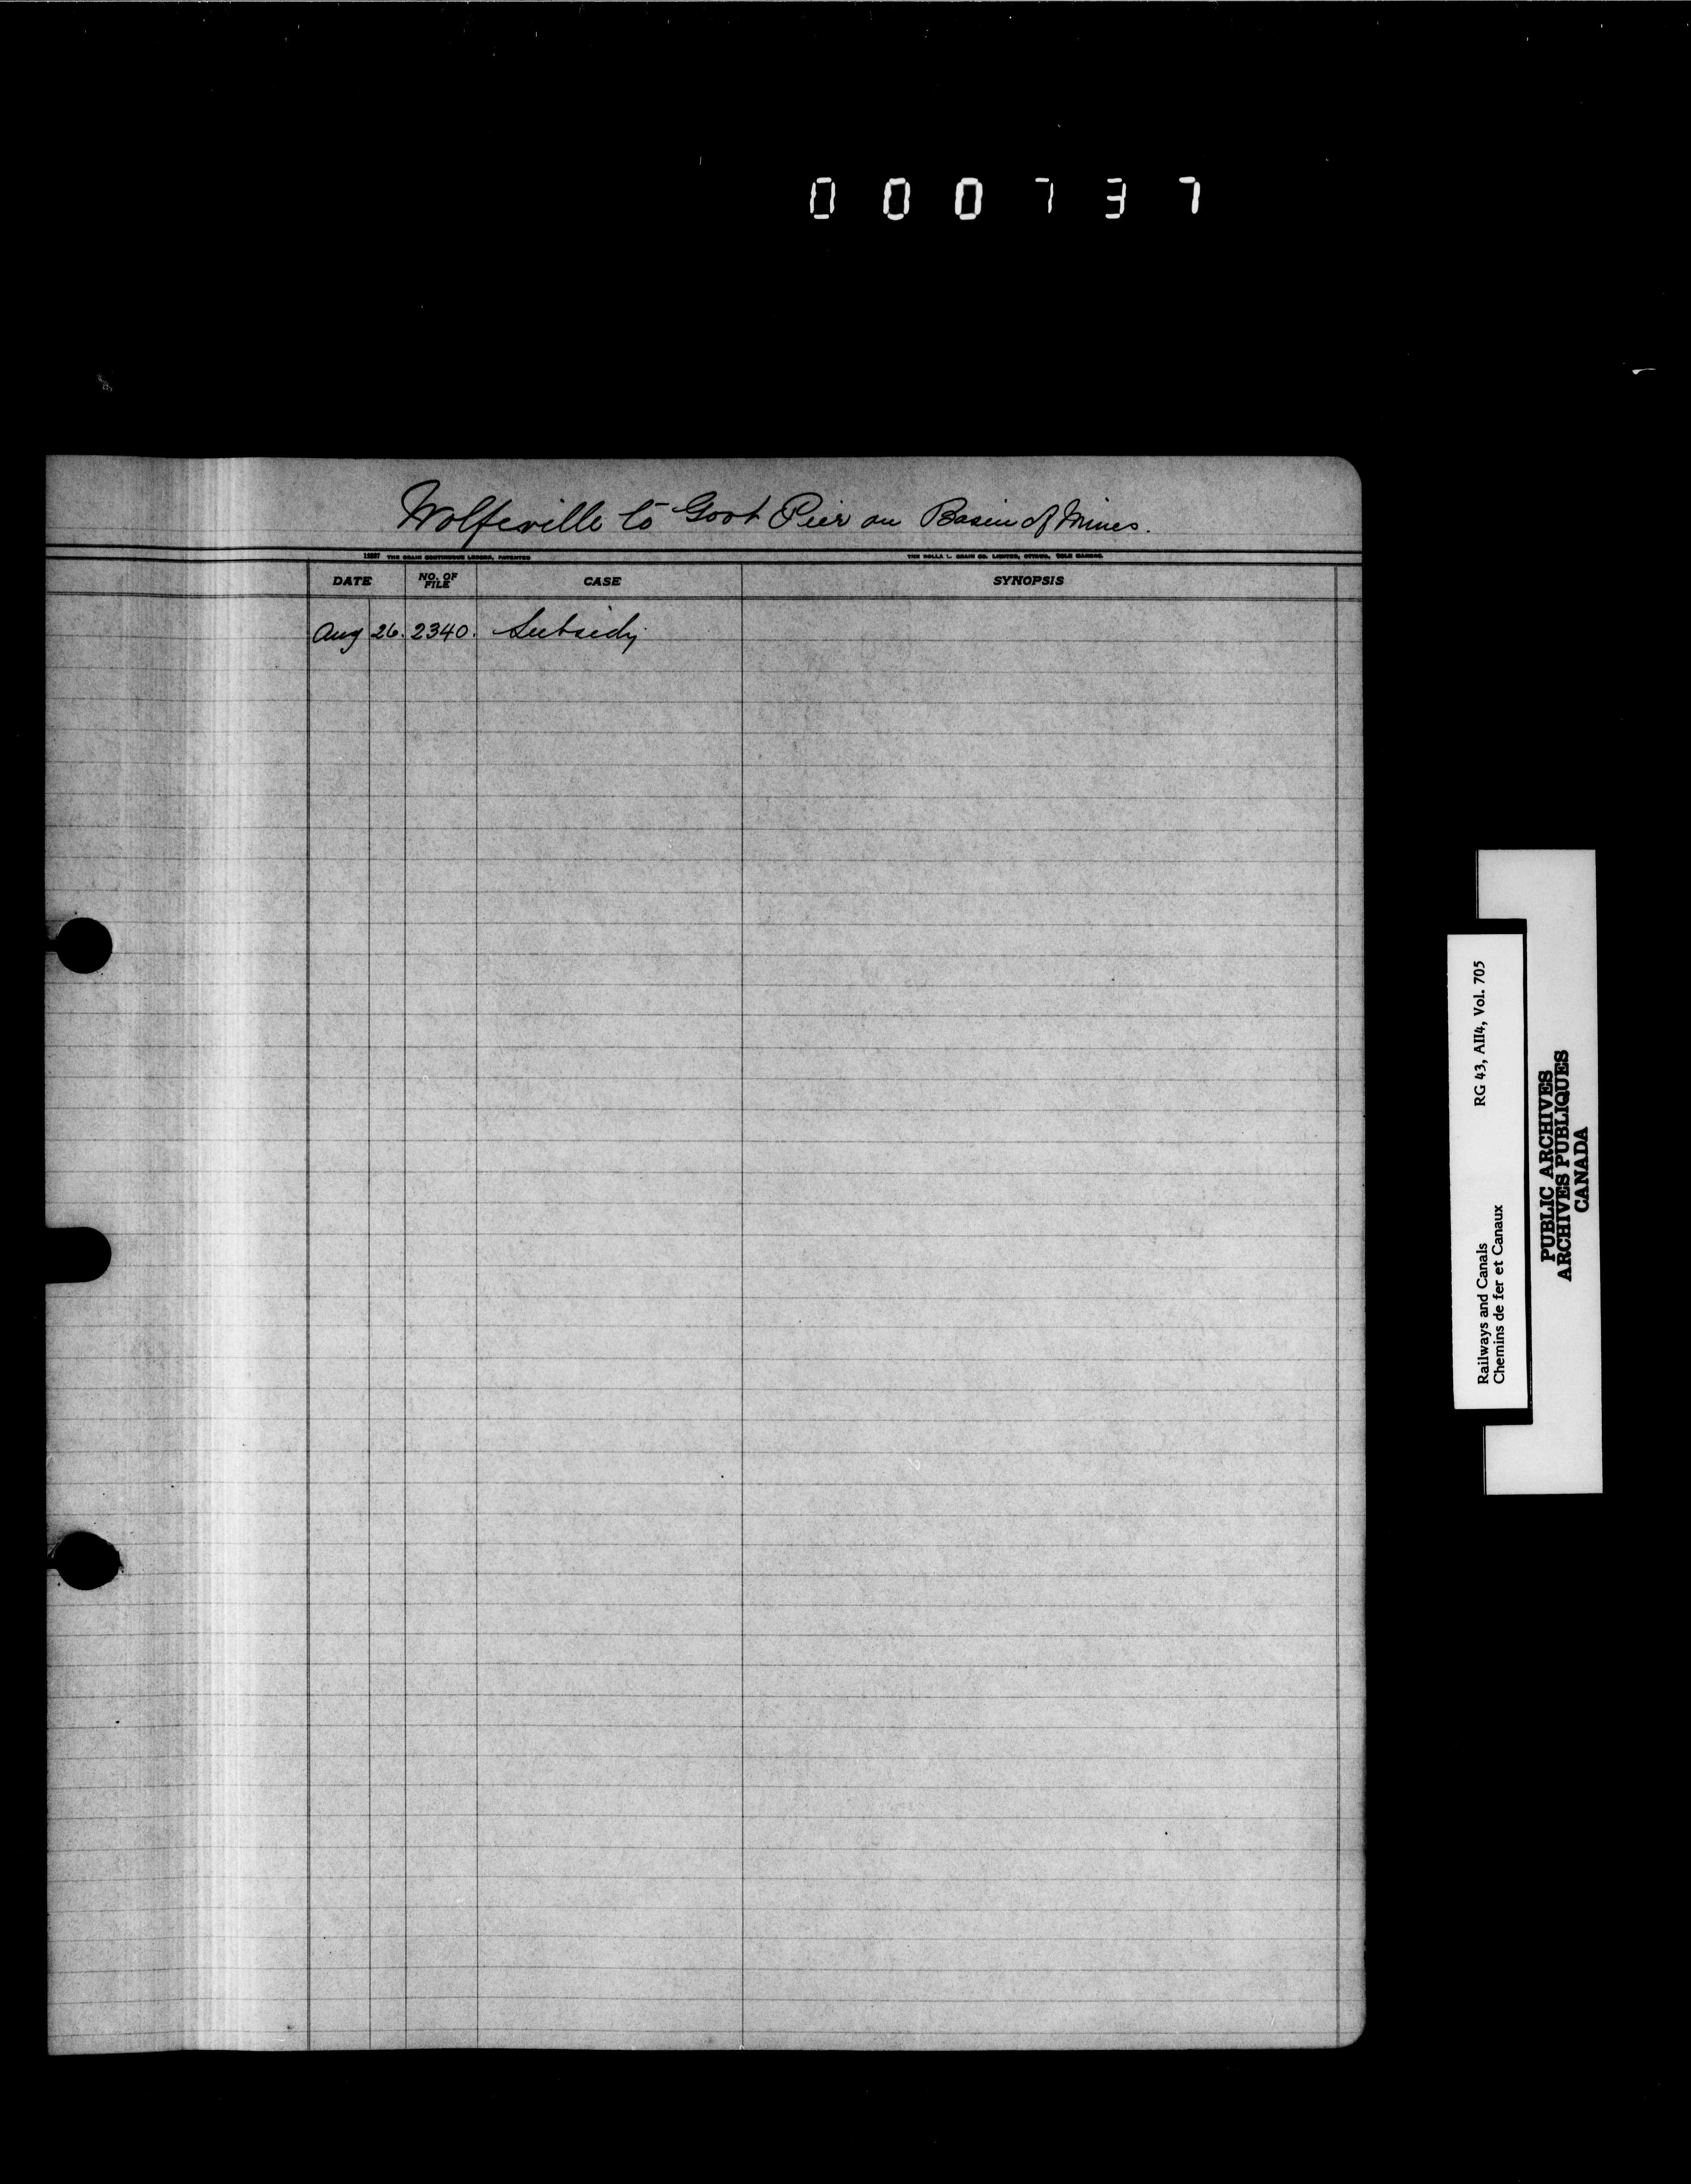 000737
Wolfeville to Govt Pier on Basin of Mines.
12327 THE CRAIN CONTINUOUS LEDGER, PATENTED
THE ROLLA L. CRAIN CO. LIMITED, OTTAWA, SOLE MAKERS.
DATE NO. OF FILE CASE SYNOPSIS
Aug 26. 2340. Subsidy
RG 43, AII4, Vol. 705
Railways and Canals
Chemins de fer et Canaux
PUBLIC ARCHIVES
ARCHIVES PUBLIQUES
CANADA